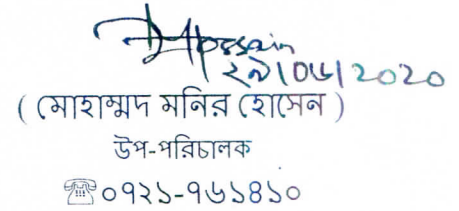 DHossain
২৯/০৬/2020
( মোহাম্মদ মনির হোসেন )
উপ-পরিচালক
☎০৭২১-৭৬১৪১০